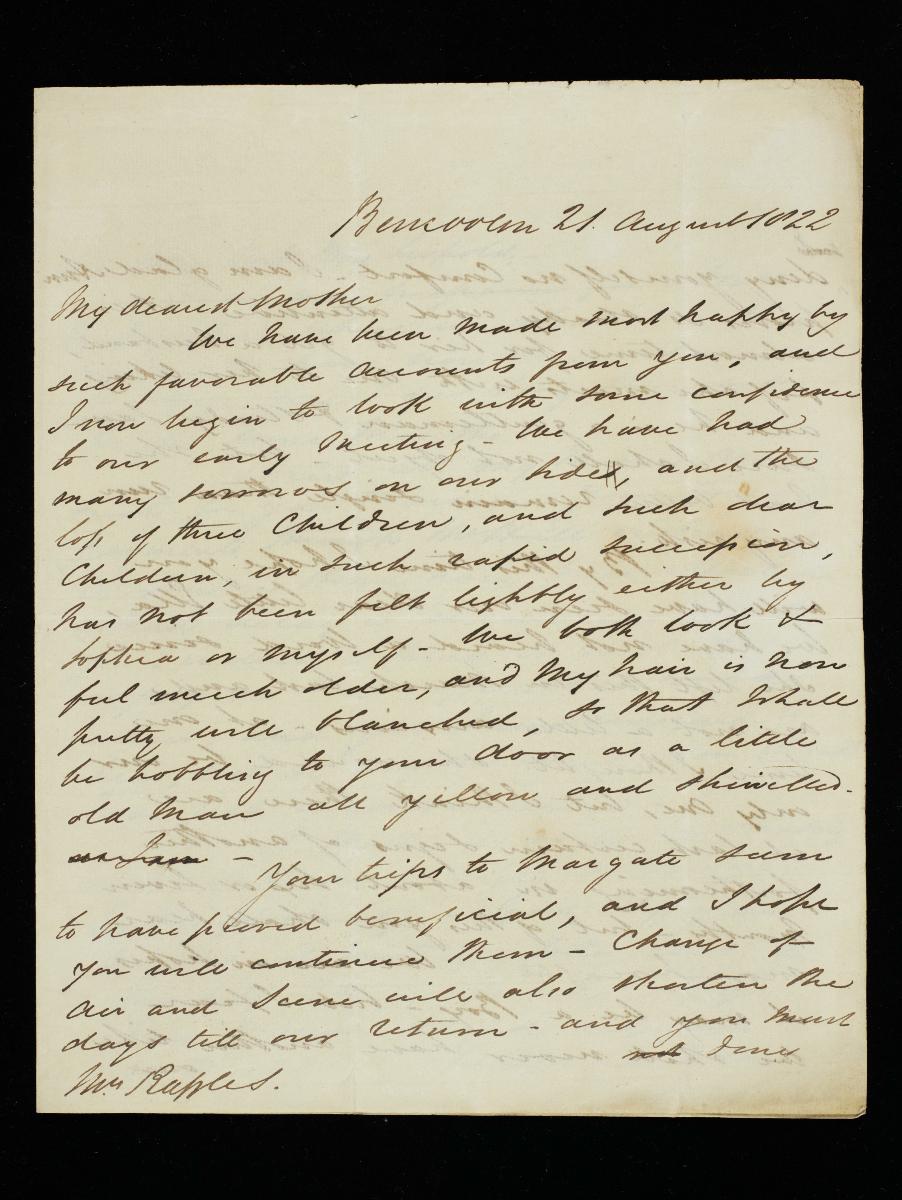 Bencoolen 21. August 1822
My dearest Mother
We have been made most happy by
such favorable accounts from you, and
I now begin to look with some confidence
to our early meeting - We have had
many sorrows on our side, and the
loss of three Children, and such dear
Children, in such rapid succession,
has not been felt lightly either by
Sophia or myself - We both look &
feel much older, and my hair is now
pretty well blanched, so that I shall
be hobbling to your door as a little
old Man all yellow and shrivelled -
as I am -
Your trips to Margate seem
to have proved beneficial, and I hope
you will continue them - Change of
Air and Scene will also shorten the
days till our return - and you must
not deny
Mrs Raffles.